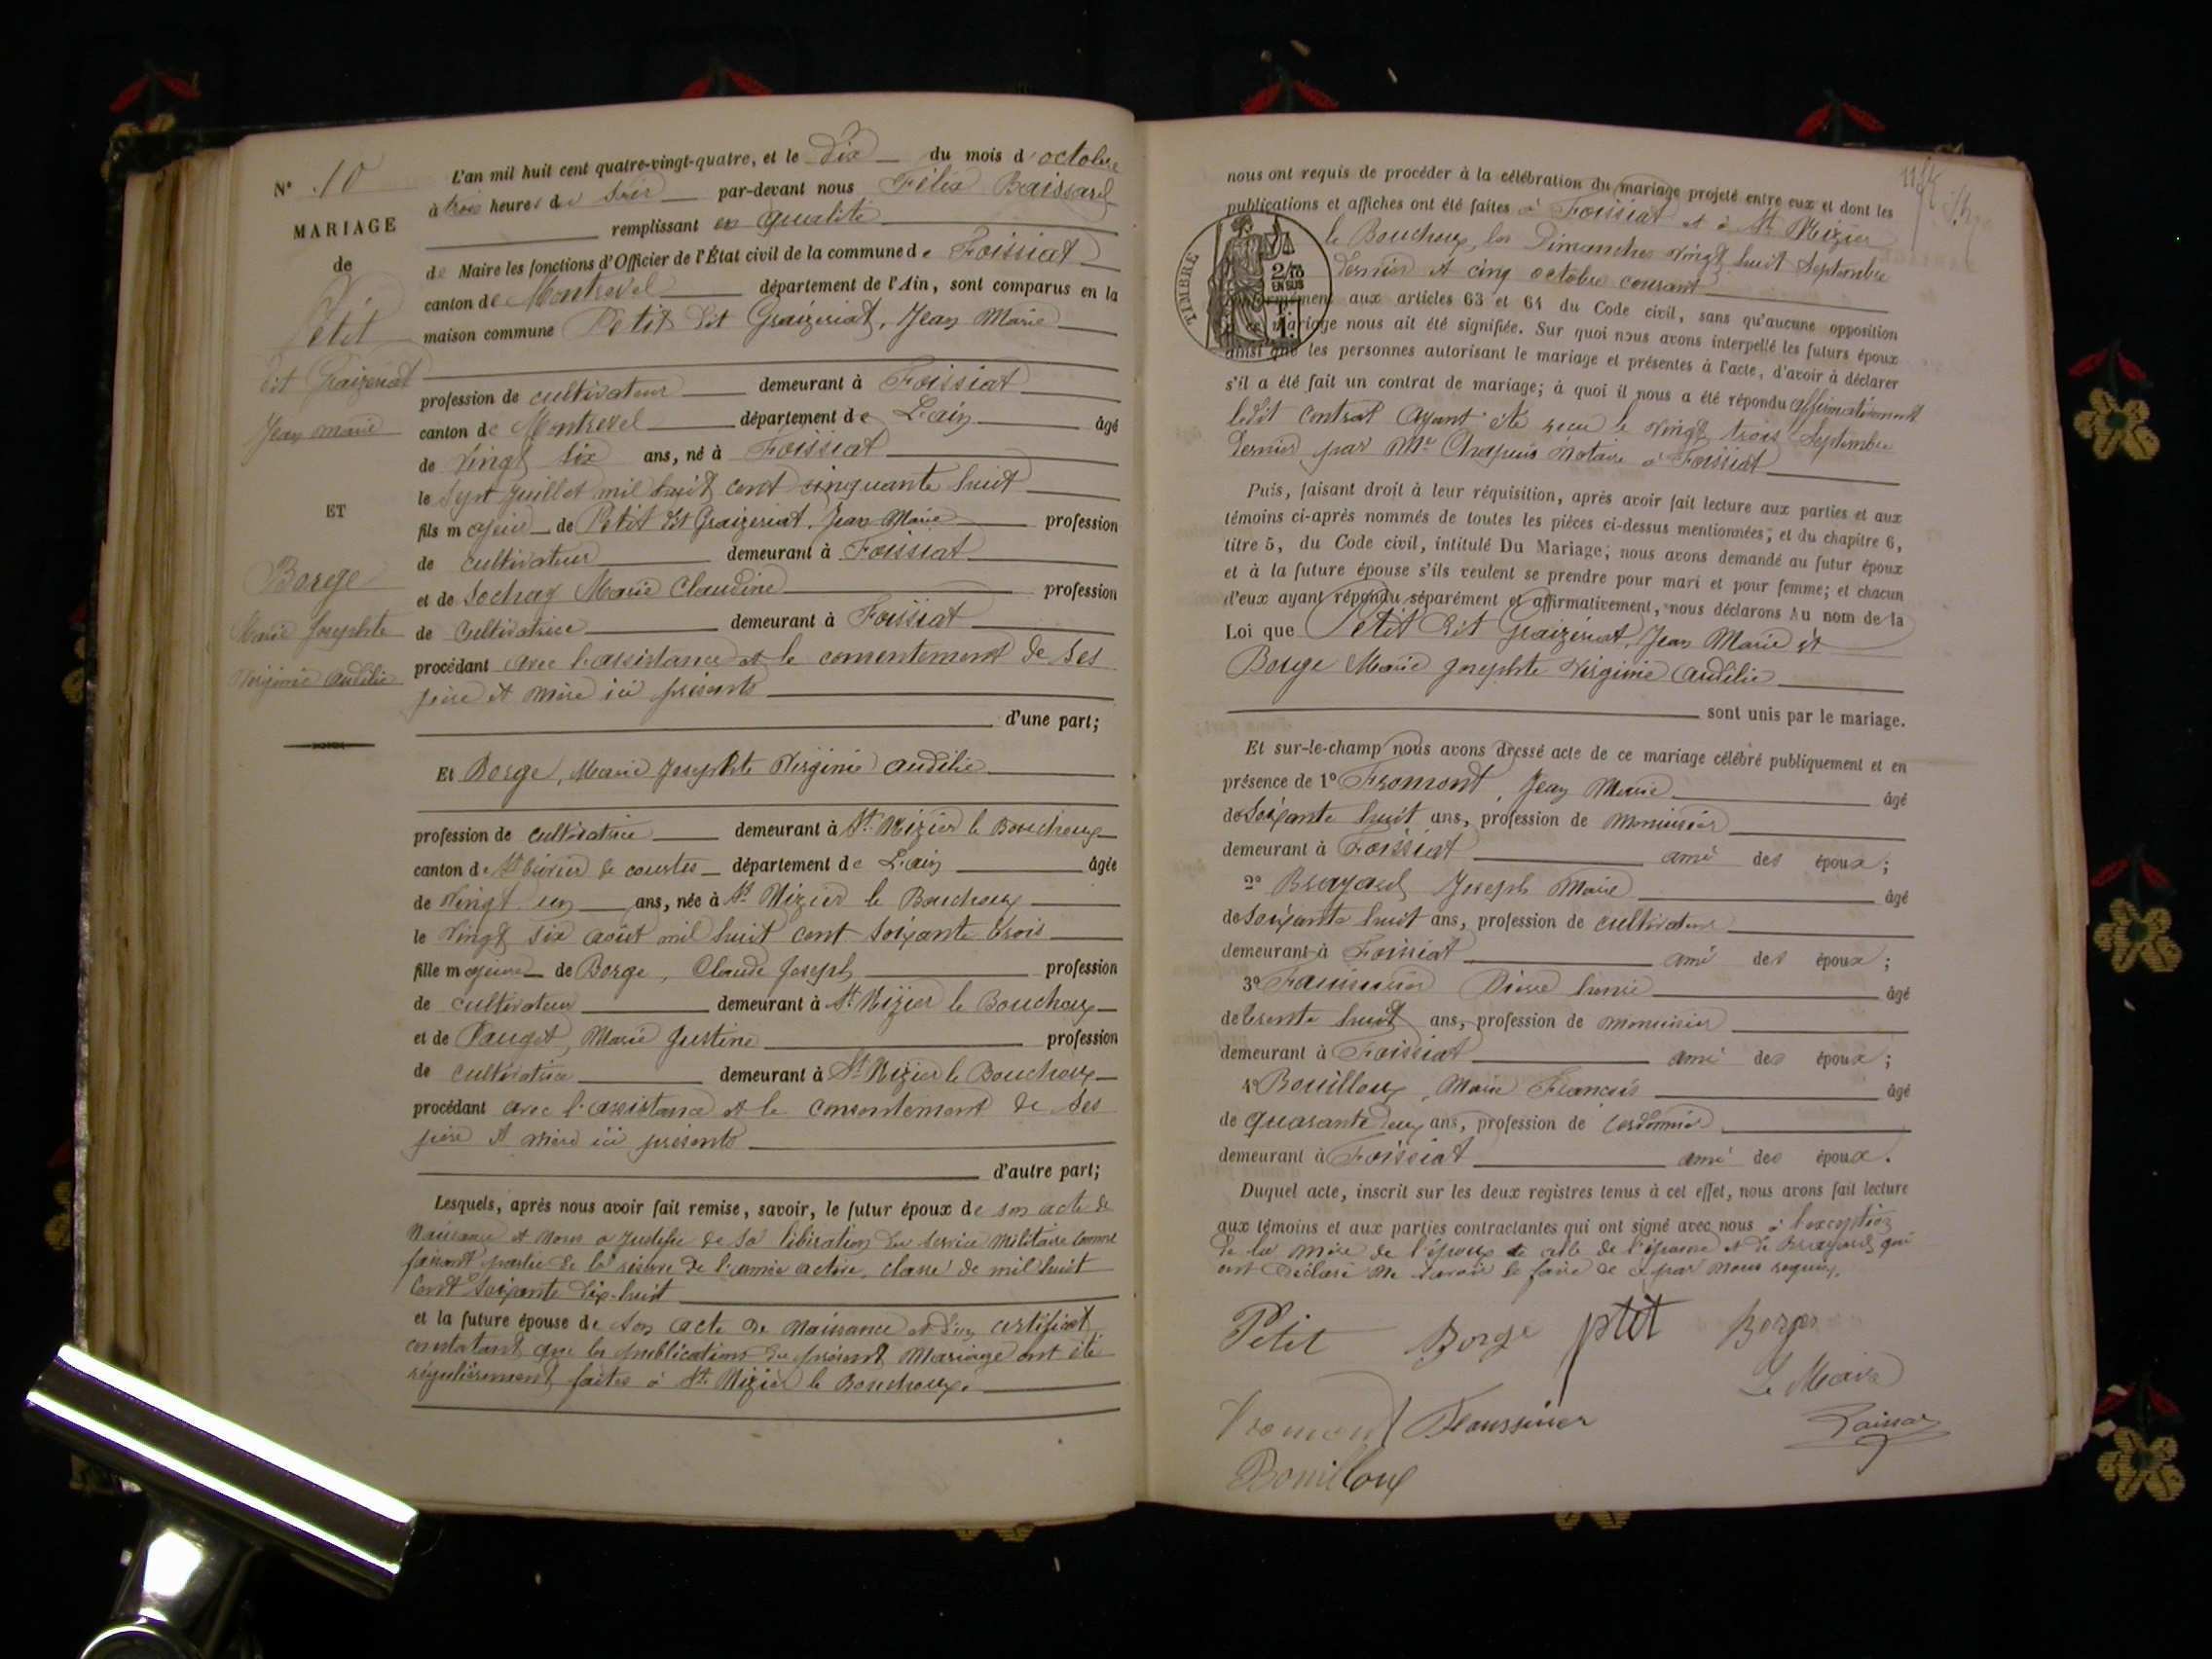 N° 10
MARIAGE
de
Petit
dit Graizeriat
Jean Marie
ET
Borge
Marie Josephte
Virginie Audélie
L'an mil huit cent quatre-vingt-quatre, et le Dix du mois d'octobre
à trois heures du Soir par-devant nous Félix Baissard
remplissant en qualité
de Maire les fonctions d'Officier de l'État civil de la commune de Foissiat
canton de Montrevel département de l'Ain, sont comparus en la
maison commune Petit dit Graizeriat, Jean Marie
profession de cultivateur demeurant à Foissiat
canton de Montrevel département de L'ain âgé
de Vingt six ans, né à Foissiat
le Sept Juillet mil huit cent cinquante huit
fils majeur de Petit dit Graizeriat, Jean Marie profession
de cultivateur demeurant à Foissiat
et de Sochay Marie Claudine profession
de Cultivatrice demeurant à Foissiat
procédant avec l'assistance et le consentement de ses
père et mère ici présents
d'une part;
Et Borge, Marie Josephte Virginie Audélie
profession de cultivatrice demeurant à St Nizier le Bouchoux
canton de St trivier de courtes département de L'ain âgée
de Vingt un ans, née à St Nizier le Bouchoux
le Vingt six août mil huit cent soixante trois
fille majeure de Borge, Claude Joseph profession
de cultivateur demeurant à St Nizier le Bouchoux
et de Pauget, Marie Justine profession
de cultivatrice demeurant à St Nizier le Bouchoux
procédant avec l'assistance et le consentement de ses
père et mère ici présents
d'autre part;
Lesquels, après nous avoir fait remise, savoir, le futur époux de son acte de
Naissance et nous a justifié de sa libération du service militaire comme
faisant partie de la réserve de l'armée active, classe de mil huit
Cent Soixante dix-huit
et la future épouse de son acte de Naissance et d'un certificat
constatant que les publications du présent Mariage ont été
régulièrement faites à St Nizier le Bouchoux.
nous ont requis de procéder à la célébration du mariage projeté entre eux et dont les
publications et affiches ont été faites à Foissiat et à St Nizier
le Bouchoux, les Dimanches vingt huit Septembre
dernier et cinq octobre courant
TIMBRE
2/10
EN SUS
conformément aux articles 63 et 64 du Code civil, sans qu'aucune opposition
à ce mariage nous ait été signifiée. Sur quoi nous avons interpellé les futurs époux
ainsi que les personnes autorisant le mariage et présentes à l'acte, d'avoir à déclarer
s'il a été fait un contrat de mariage; à quoi il nous a été répondu affirmativement
ledit contrat ayant été reçu le vingt trois Septembre
dernier par Me Chapuis Notaire à Foissiat
Puis, faisant droit à leur réquisition, après avoir fait lecture aux parties et aux
témoins ci-après nommés de toutes les pièces ci-dessus mentionnées, et du chapitre 6,
titre 5, du Code civil, intitulé Du Mariage, nous avons demandé au futur époux
et à la future épouse s'ils veulent se prendre pour mari et pour femme; et chacun
d'eux ayant répondu séparément et affirmativement, nous déclarons Au nom de la
Loi que Petit dit Graizériat, Jean Marie et
Borge Marie Josephte Virginie Audélie
sont unis par le mariage.
Et sur-le-champ nous avons dressé acte de ce mariage célébré publiquement et en
présence de 1° Fromont, Jean Marie âgé
de Soixante huit ans, profession de Menuisier
demeurant à Foissiat ami des époux;
2° Brayard Joseph Marie âgé
de Soixante huit ans, profession de cultivateur
demeurant à Foissiat ami des époux;
3° âgé
de trente huit ans, profession de menuisier
demeurant à Foissiat ami des époux;
4° Bouilloux, Marie François âgé
de quarante deux ans, profession de Cordonnier
demeurant à Foissiat ami des époux.
Duquel acte, inscrit sur les deux registres tenus à cet effet, nous avons fait lecture
aux témoins et aux parties contractantes qui ont signé avec nous à l'exception
de la mère de l'époux de celle de l'épouse et de Brayard qui
ont déclaré ne savoir le faire de ce par nous requis.
Petit Borge ptit Borge
Le Maire
Fromont Faussurier Baissard
Bouilloux